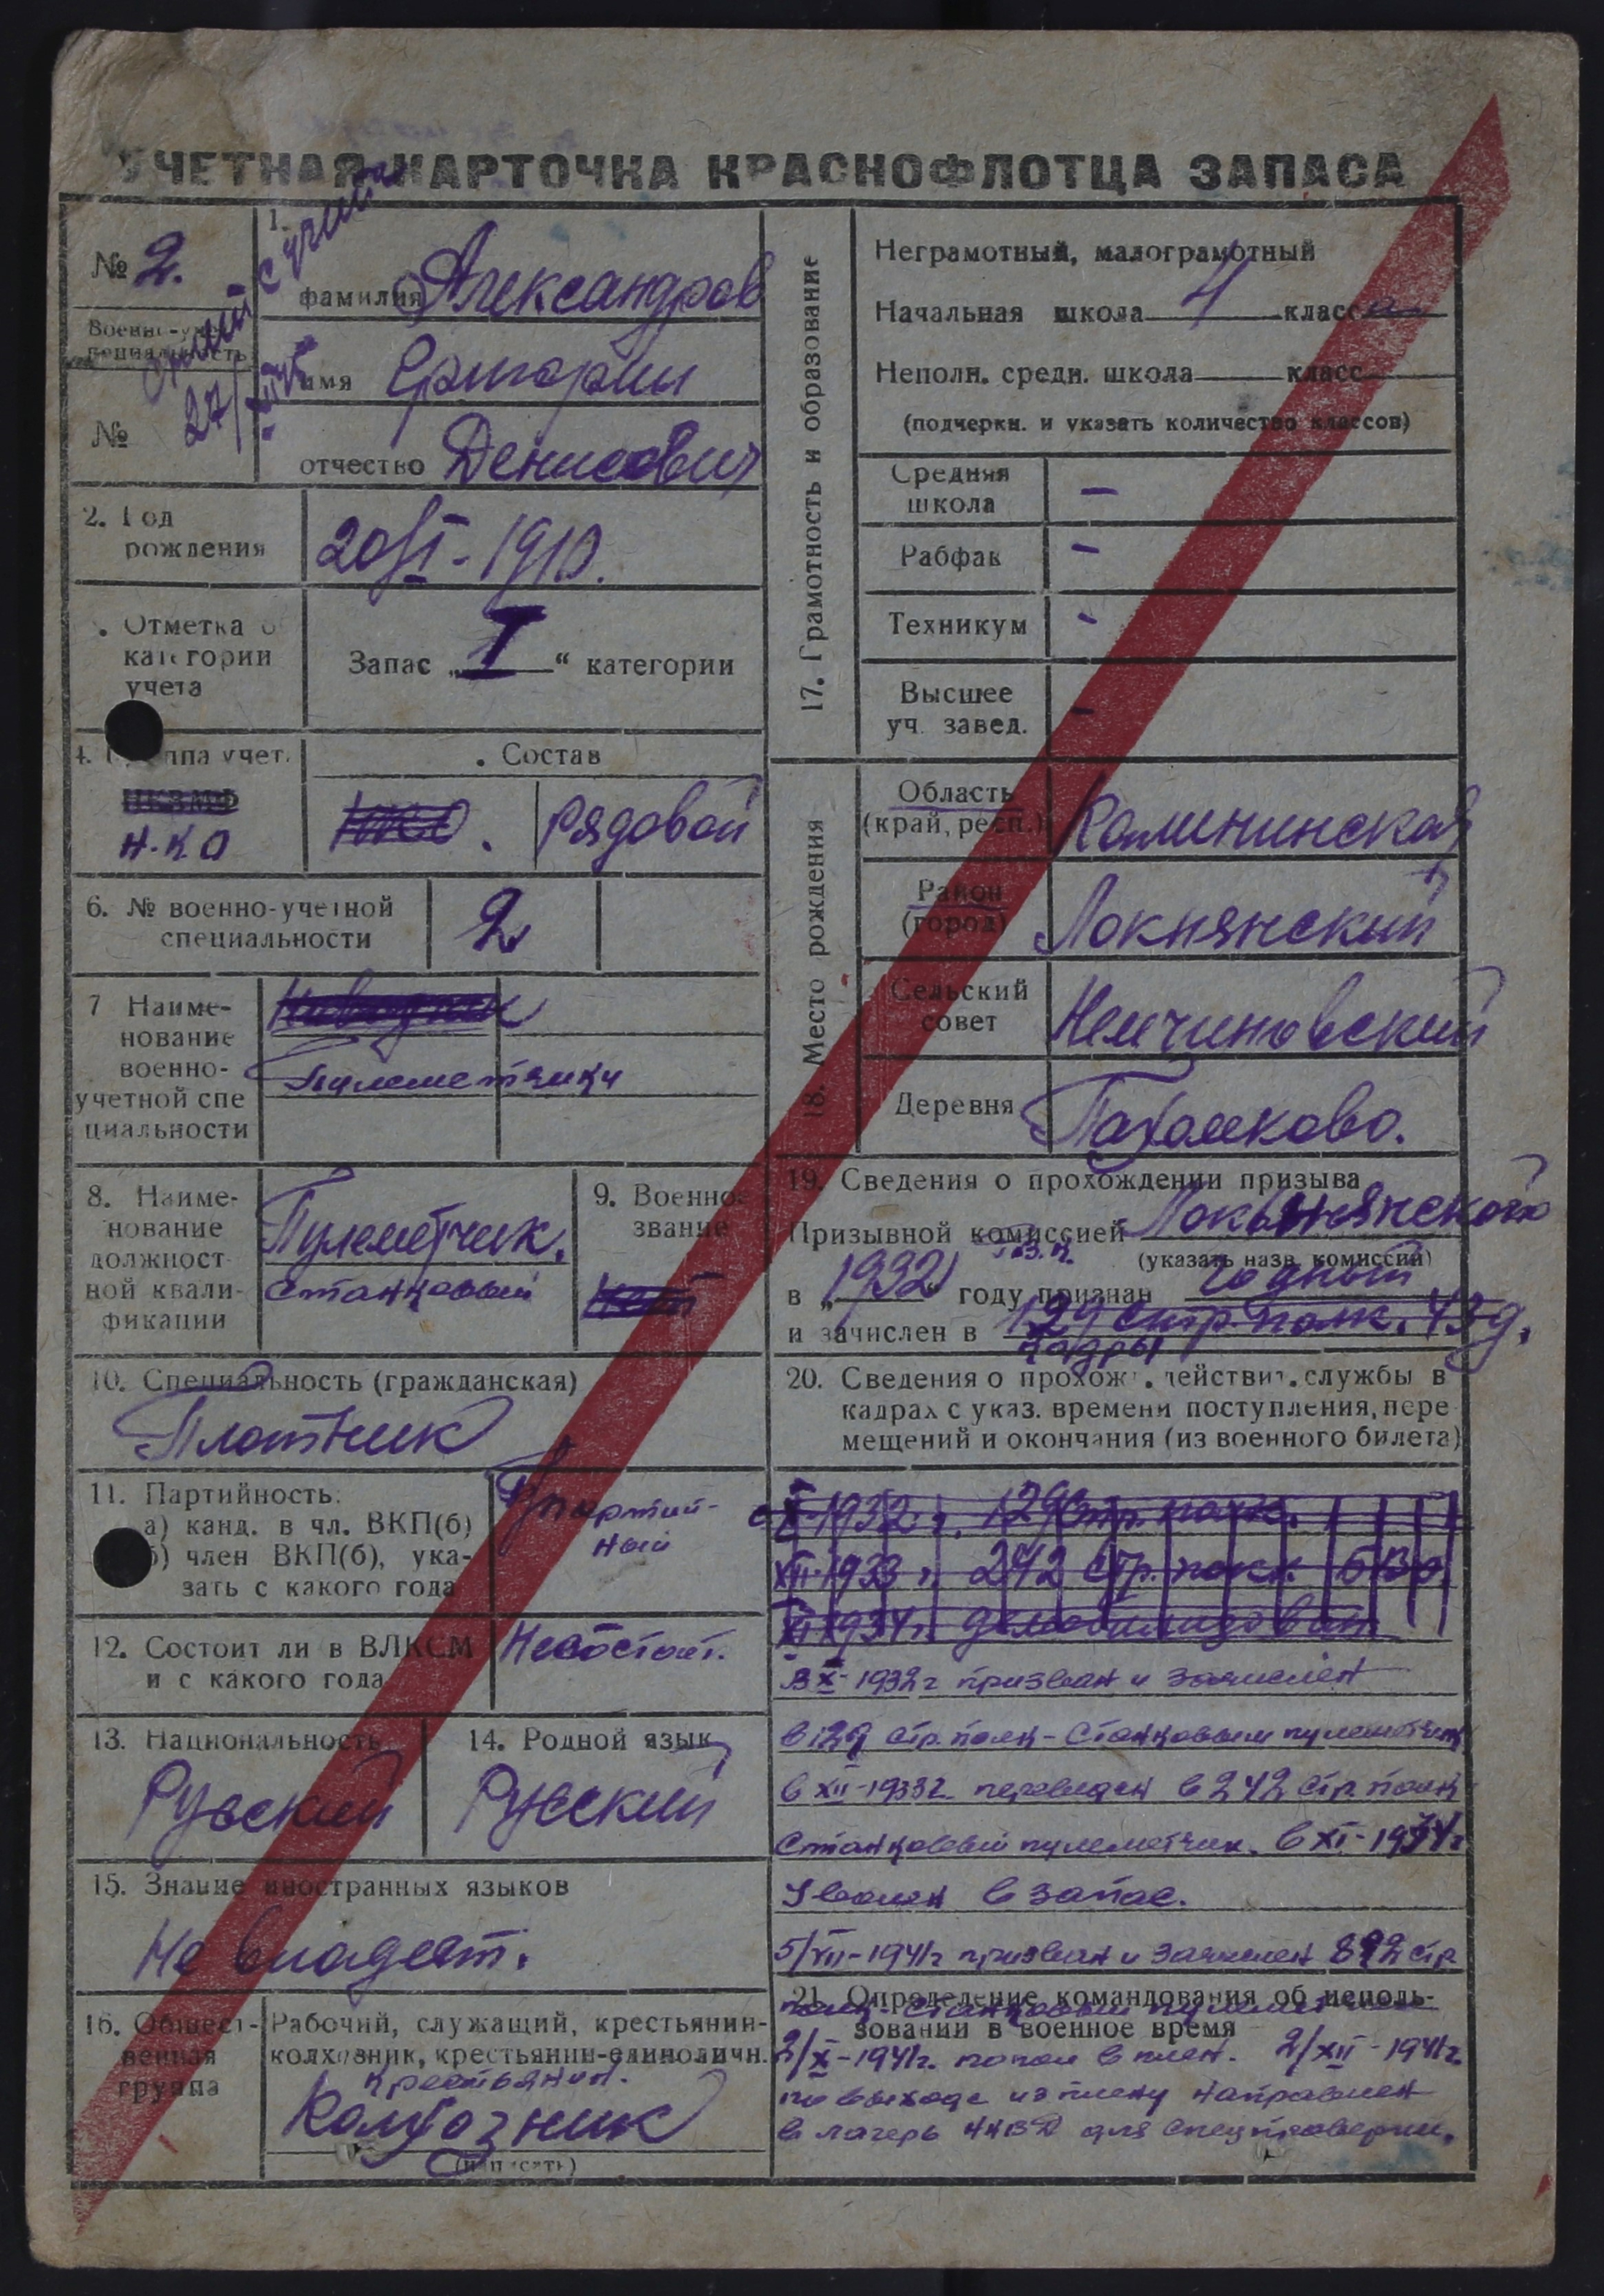 УЧЕТНАЯ КАРТОЧКА КРАСНОФЛОТЦА ЗАПАСА
№ 2.
с учета
27/
Военно-учет
специальность
№
1.
фамилия Александров
имя Григорий
отчество Денисович
2. Год
рождения
20/VI - 1910.
Отметка о
категории
учета
Запас „I“ категории
4. Группа учет.
НКВМФ
Н.К.О
Состав
Рядовой
6. № военно-учетной
специальности
2
7 Наиме-
нование
военно-
учетной спе
циальности
Пулеметчики
8. Наиме-
нование
должност
ной квали-
фикации
Пулеметчик.
Станковый
9. Военное
звание
10. Специальность (гражданская)
Плотник
11. Партийность:
а) канд. в чл. ВКП(б)
б) член ВКП(б), ука-
зать с какого года
партий-
ный
12. Состоит ли в ВЛКСМ
и с какого года
Несостоит.
13. Национальность
Русский
14. Родной язык
Русский
15. Знание иностранных языков
Не владеет.
16. Общест-
венная
группа
Рабочий, служащий, крестьянин-
колхозник, крестьянин-единоличн.
крестьянин.
Колхозник
(написать)
17. Грамотность и образование
Неграмотный, малограмотный
Начальная школа 4 класса
Неполн. средн. школа класс
(подчеркн. и указать количество классов)
Средняя
школа
-
Рабфак
-
Техникум
-
Высшее
уч. завед.
-
18. Место рождения
Область
(край, респ.)
Калининская
Район
(город)
Локнянский
Сельский
совет
Немчиновский
Деревня
Пахомково.
19. Сведения о прохождении призыва
Призывной комиссией Локнянского
Р.В.К.
(указать назв. комиссии)
в „1932“ году признан годный
и зачислен в 129 стр. полк. 43 д.
кадры
20. Сведения о прохожд. действит. службы в
кадрах с указ. времени поступления, пере
мещений и окончания (из военного билета)
с X-1932 г. 129 стр. полк.
XII-1933 г. 242 стр. полк. БВО.
XI 1934 г. демобилизован
В X-1932 г призван и зачислен
в 129 стр. полк - Станковым пулеметчик
в XII-1933г. переведен в 242 стр. полк
Станковый пулеметчик. в XI-1934 г
Уволен в запас.
5/VII-1941г призван и зачислен 892 стр
полк - Станковый пулеметчик
21. Определение командования об исполь-
зовании в военное время
2/X-1941г. попал в плен. 2/XII-1941г.
по выходе из плену направлен
в лагерь НКВД для спецпроверки.